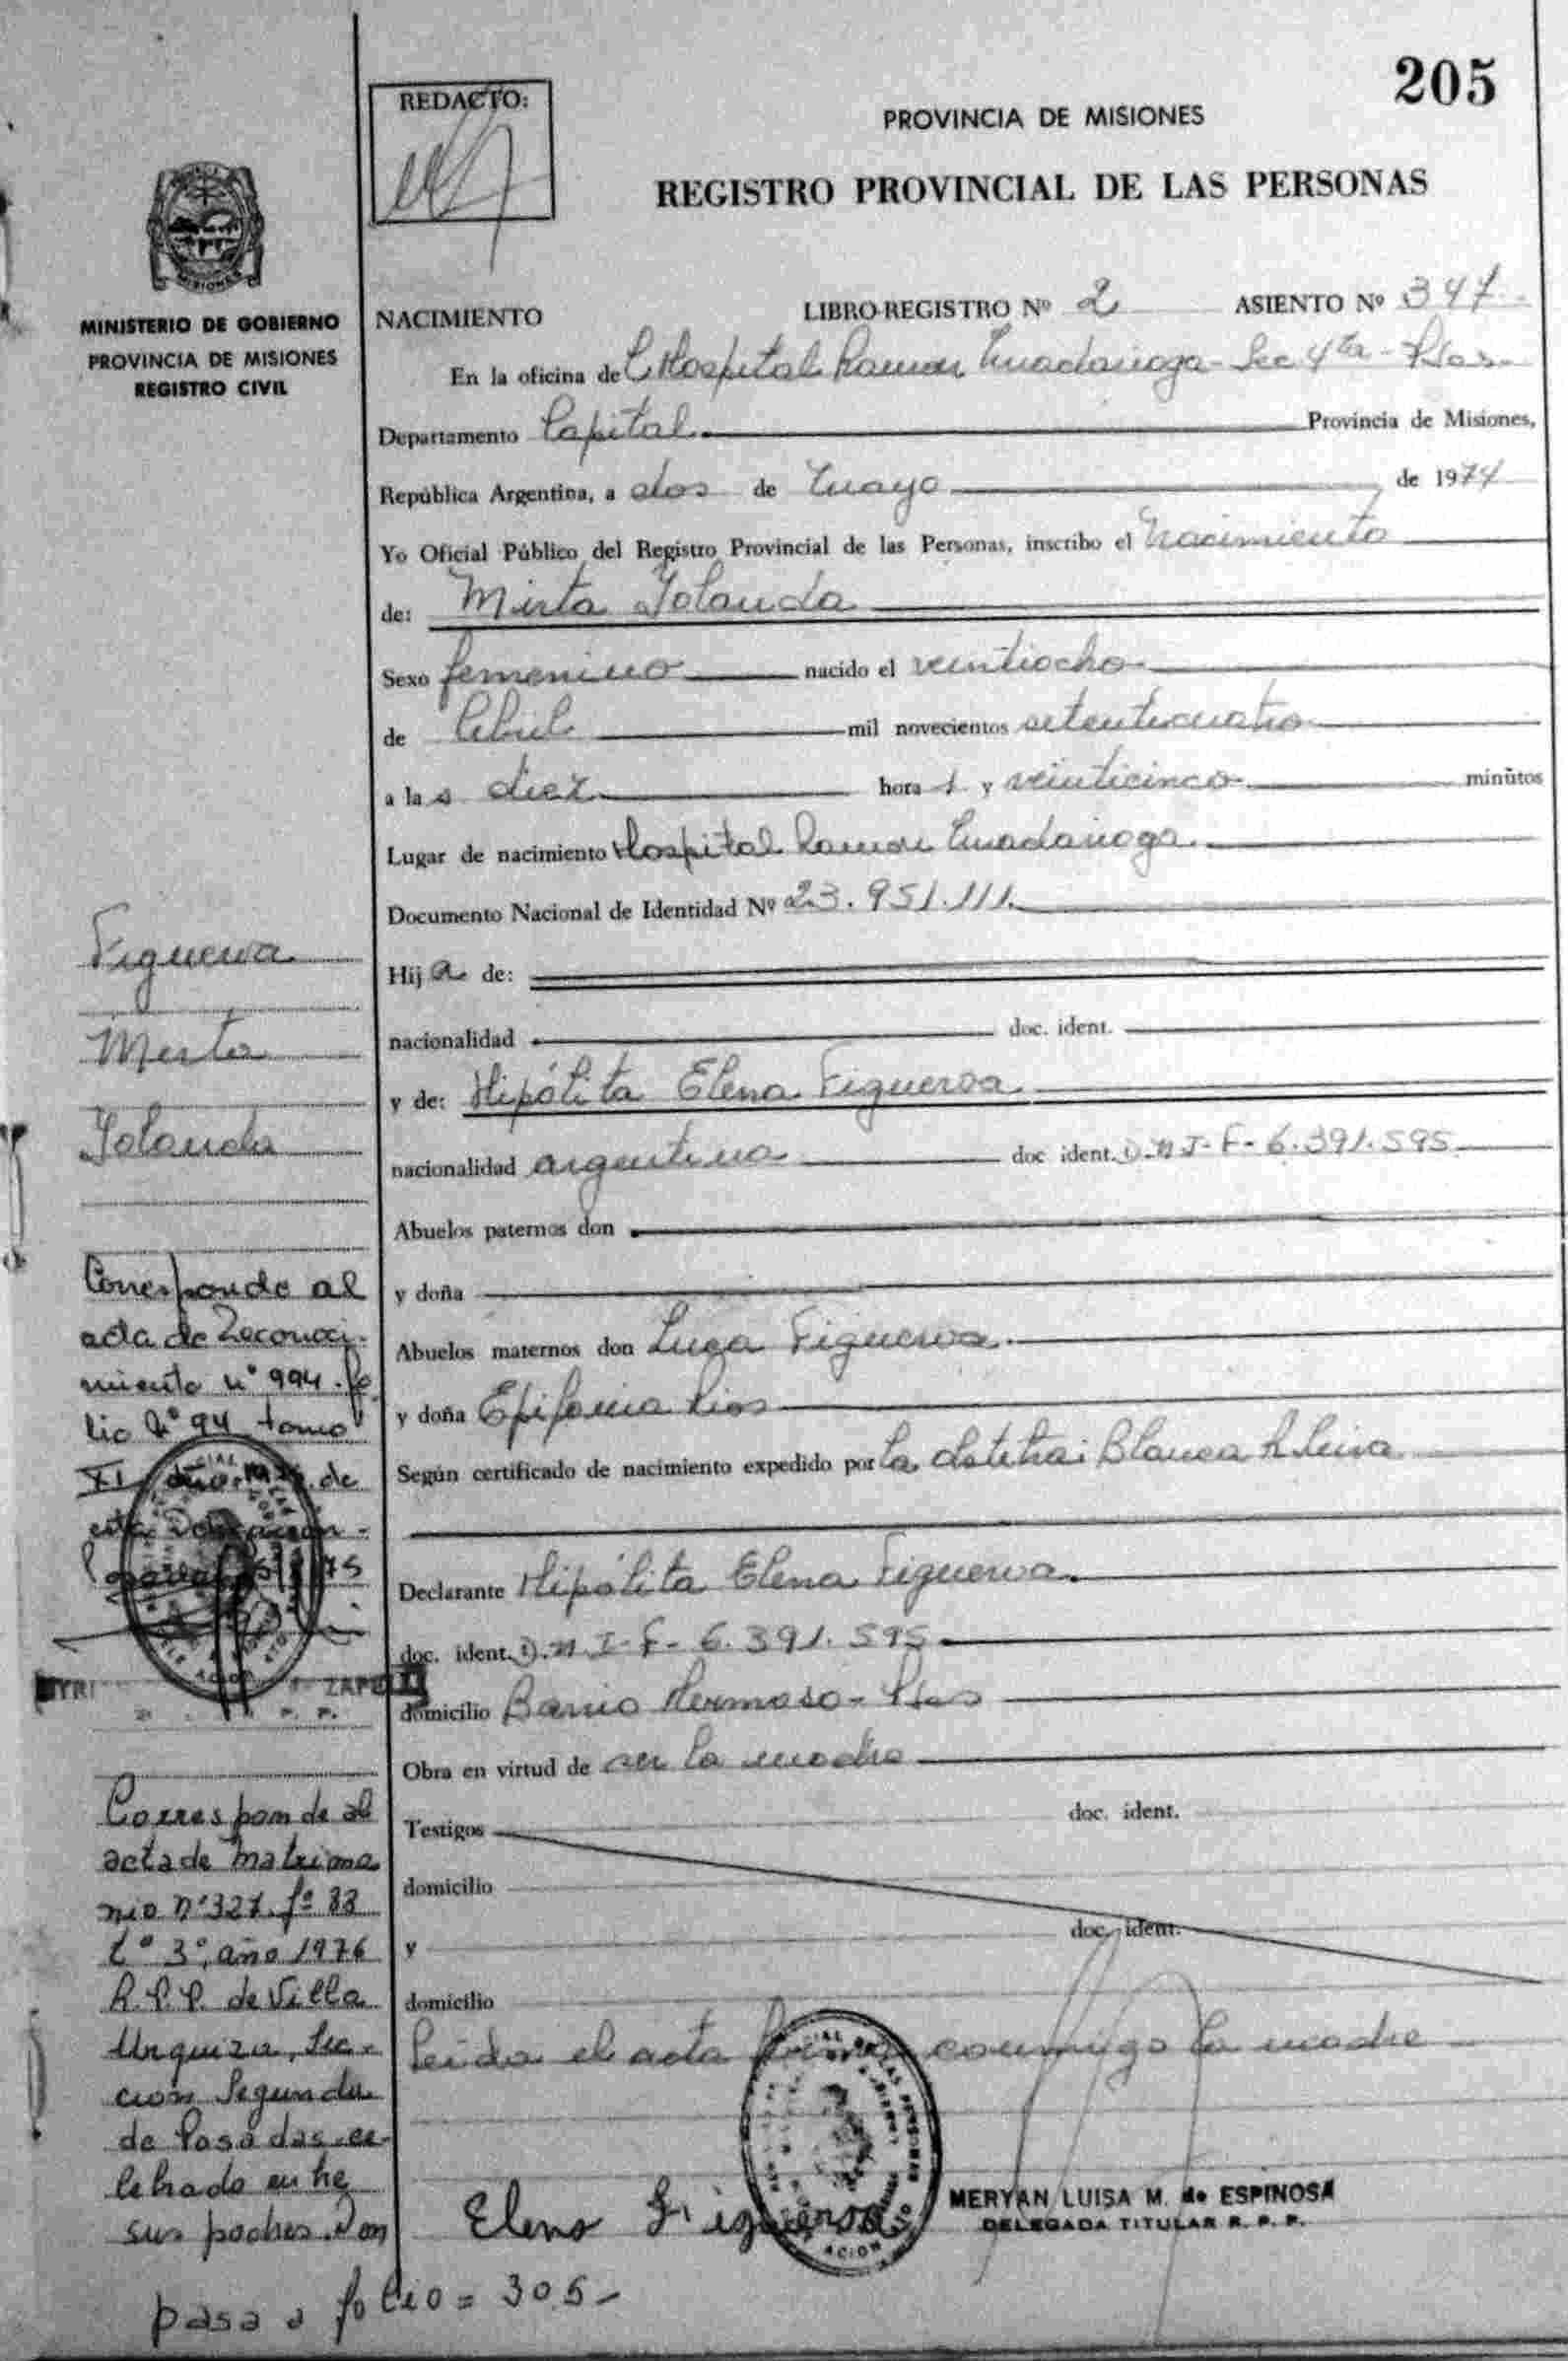 205
REDACTO:
PROVINCIA DE MISIONES
REGISTRO PROVINCIAL DE LAS PERSONAS
MISIONES
MINISTERIO DE GOBIERNO
PROVINCIA DE MISIONES
REGISTRO CIVIL
NACIMIENTO LIBRO-REGISTRO Nº 2 ASIENTO Nº 347
En la oficina de Hospital Ramon Madariaga - Sec 4ta - Pdas -
Departamento Capital Provincia de Misiones,
República Argentina, a dos de Mayo de 1974
Yo Oficial Público del Registro Provincial de las Personas, inscribo el Nacimiento
de: Mirta Yolanda
Sexo femenino nacido el veintiocho
de Abril mil novecientos setenticuatro
a las diez horas y veinticinco minutos
Lugar de nacimiento Hospital Ramon Madariaga
Documento Nacional de Identidad Nº 23.951.111.
Hija de:
nacionalidad doc. ident.
y de: Hipólita Elena Figueroa
nacionalidad argentina doc ident. D.N.I-F- 6.391.595
Abuelos paternos don
y doña
Abuelos maternos don Luca Figueroa
y doña Epifania Rios
Según certificado de nacimiento expedido por la obstetra: Blanca
Declarante Hipólita Elena Figueroa
doc. ident. D.N.I-F- 6.391.595
domicilio Barrio Hermoso - Pdas
Obra en virtud de ser la madre
Testigos doc. ident.
domicilio
y doc. ident.
domicilio
leida el acta firma conmigo la madre
Elena Figueroa
MERYAN LUISA M. de ESPINOSA
DELEGADA TITULAR R. P. P.
Figueroa
Mirta
Yolanda
Corresponde al
acta de Reconoci-
miento nº 994. fo
lio Nº 94 tomo
XI de
esta
75
Corresponde al
acta de matrimo
nio nº 327. fº 83
tº 3º, año 1976
R.P.P. de Villa
Urquiza, Sec-
cion Segunda
de Posadas-ce-
lebrado entre
sus padres. Don
pasa a folio = 305 -